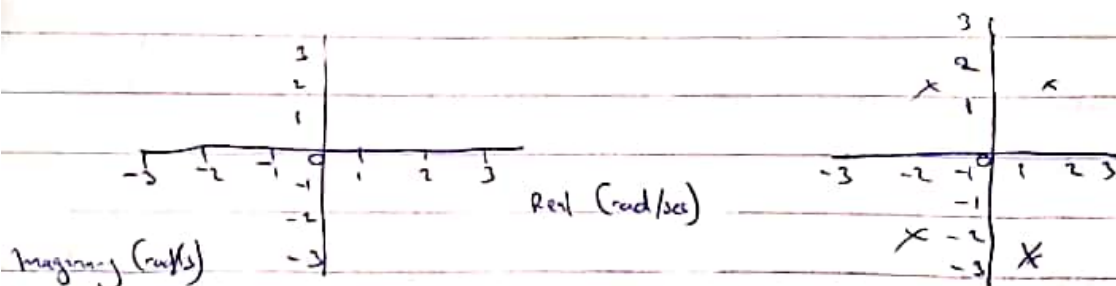 3
2
1
-3 -2 -1 0 1 2 3
-1
-2
-3
Real (rad/sec)
Imaginary (rad/s)
3
2
1
-3 -2 -1 0 1 2 3
-1
-2
-3